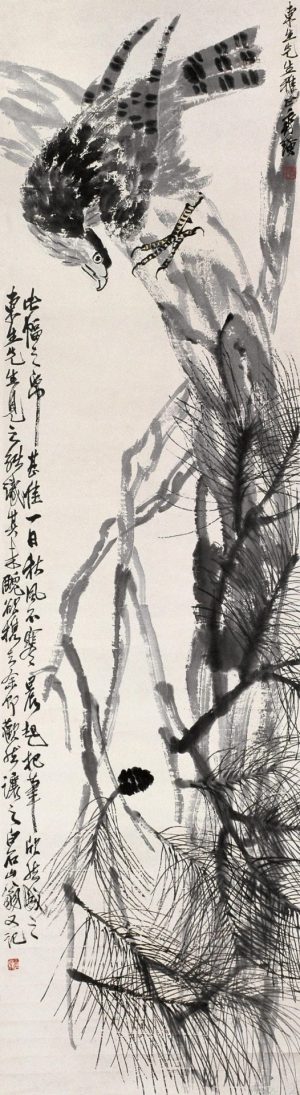 東生先生雅正齊璜
此幅之帋甚佳一日秋風不寒晨起把筆欣然成之
東生先生見之識其未醜欲去余即歡然讓之白石山翁又記